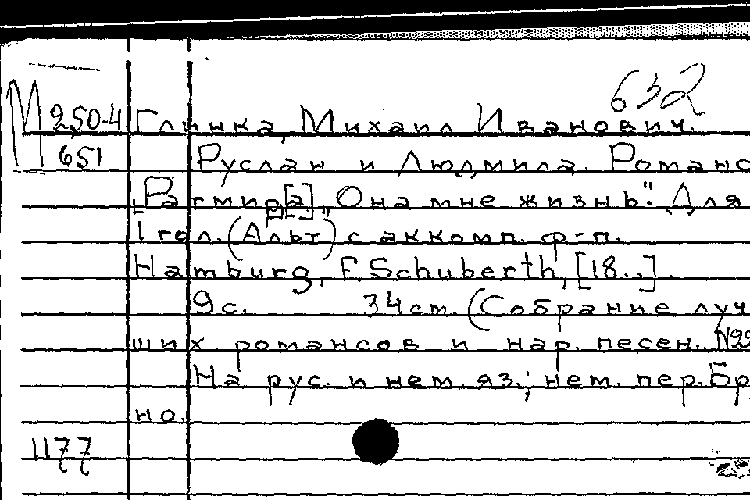 632
М 250-4 Глинка, Михаил Иванович.
651 Руслан и Людмила. Романс
„Ратмир[а] „Она мне жизнь". Для
1 гол. (Альт) с аккомп. ф-п.
Hamburg, F. Schuberth, [18..].
9с. 34см. (Собрание луч
ших романсов и нар. песен. №22
На рус. и нем. яз.; нем. пер. Бр
но.
1177